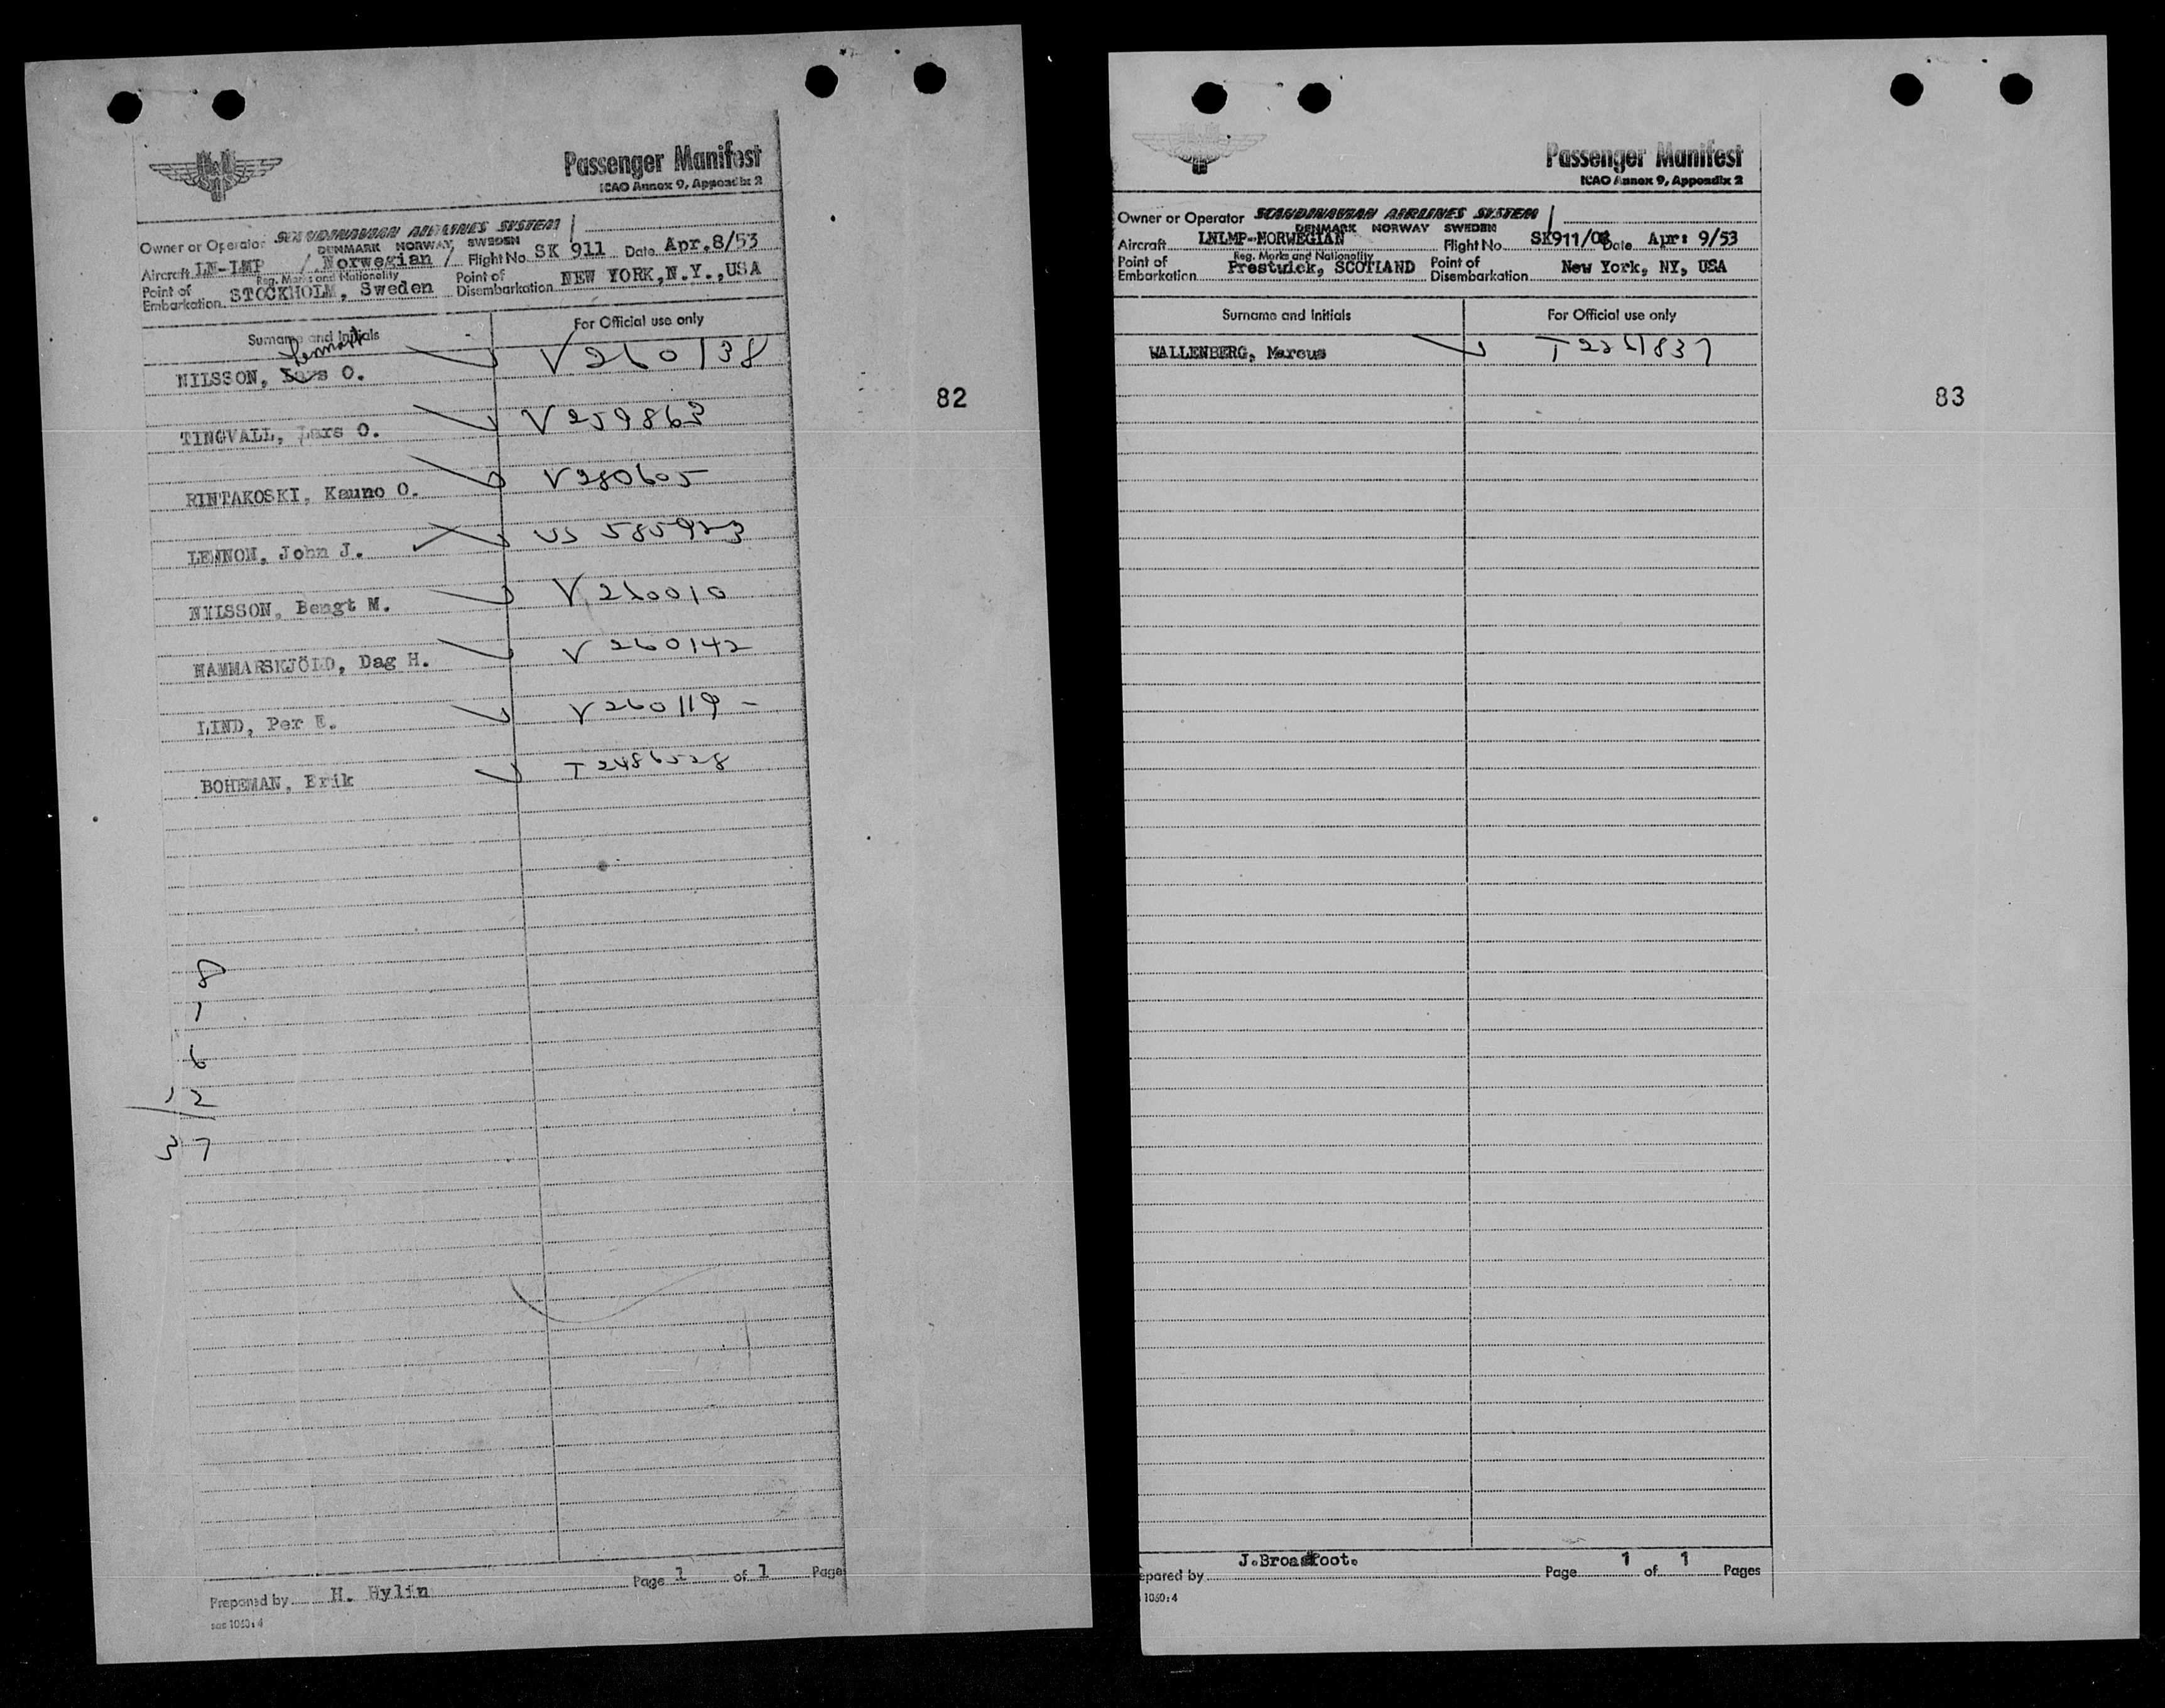 Passenger Manifest
ICAO Annex 9, Appendix 2
Owner or Operator SCANDINAVIAN AIRLINES SYSTEM
DENMARK NORWAY SWEDEN
Aircraft LN-LMP / Norwegian / Flight No. SK 911 Date Apr.8/53
Reg. Marks and Nationality
Point of Embarkation STOCKHOLM, Sweden Point of Disembarkation NEW YORK,N.Y.,USA
Surname and Initials For Official use only
Lennart
NILSSON, Lars O. V 260138
TINGVALL, Lars O. V259863
RINTAKOSKI, Kauno O. V280605
LENNON, John J. US 585923
NILSSON, Bengt M. V260010
HAMMARSKJÖLD, Dag H. V 260142
LIND, Per E. V260119 -
BOHEMAN, Erik T2486528
8
1
6
12
37
Prepared by H. Hylin Page 1 of 1 Pages
sas 1060:4
82
Passenger Manifest
ICAO Annex 9, Appendix 2
Owner or Operator SCANDINAVIAN AIRLINES SYSTEM
DENMARK NORWAY SWEDEN
Aircraft LNLMP-NORWEGIAN Flight No. SK911/08 Date Apr: 9/53
Reg. Marks and Nationality
Point of Embarkation Prestwick, SCOTLAND Point of Disembarkation New York, NY, USA
Surname and Initials For Official use only
WALLENBERG, Marcus
83
J.Broadfoot.
epared by Page 1 of 1 Pages
1060:4